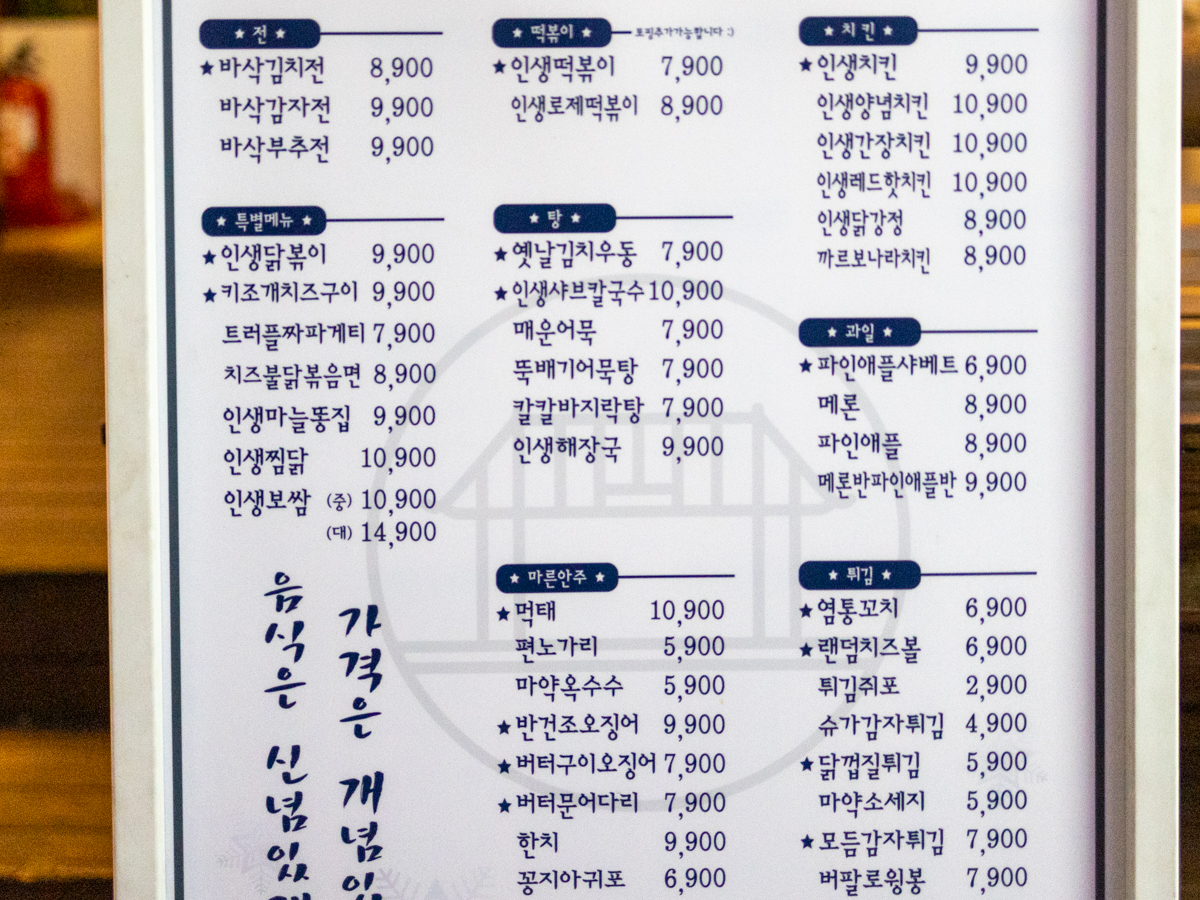 ★ 전 ★
★바삭김치전 8,900
바삭감자전 9,900
바삭부추전 9,900
★ 특별메뉴 ★
★인생닭볶이 9,900
★키조개치즈구이 9,900
트러플짜파게티 7,900
치즈불닭볶음면 8,900
인생마늘똥집 9,900
인생찜닭 10,900
인생보쌈 (중) 10,900
(대) 14,900
음식은 신념있
가격은 개념있
★ 떡볶이 ★ 토핑추가가능합니다 :)
★인생떡볶이 7,900
인생로제떡볶이 8,900
★ 탕 ★
★옛날김치우동 7,900
★인생샤브칼국수 10,900
매운어묵 7,900
뚝배기어묵탕 7,900
칼칼바지락탕 7,900
인생해장국 9,900
★ 마른안주 ★
★먹태 10,900
편노가리 5,900
마약옥수수 5,900
★반건조오징어 9,900
★버터구이오징어 7,900
★버터문어다리 7,900
한치 9,900
꽁지아귀포 6,900
★ 치킨 ★
★인생치킨 9,900
인생양념치킨 10,900
인생간장치킨 10,900
인생레드핫치킨 10,900
인생닭강정 8,900
까르보나라치킨 8,900
★ 과일 ★
★파인애플샤베트 6,900
메론 8,900
파인애플 8,900
메론반파인애플반 9,900
★ 튀김 ★
★염통꼬치 6,900
★랜덤치즈볼 6,900
튀김쥐포 2,900
슈가감자튀김 4,900
★닭껍질튀김 5,900
마약소세지 5,900
★모듬감자튀김 7,900
버팔로윙봉 7,900